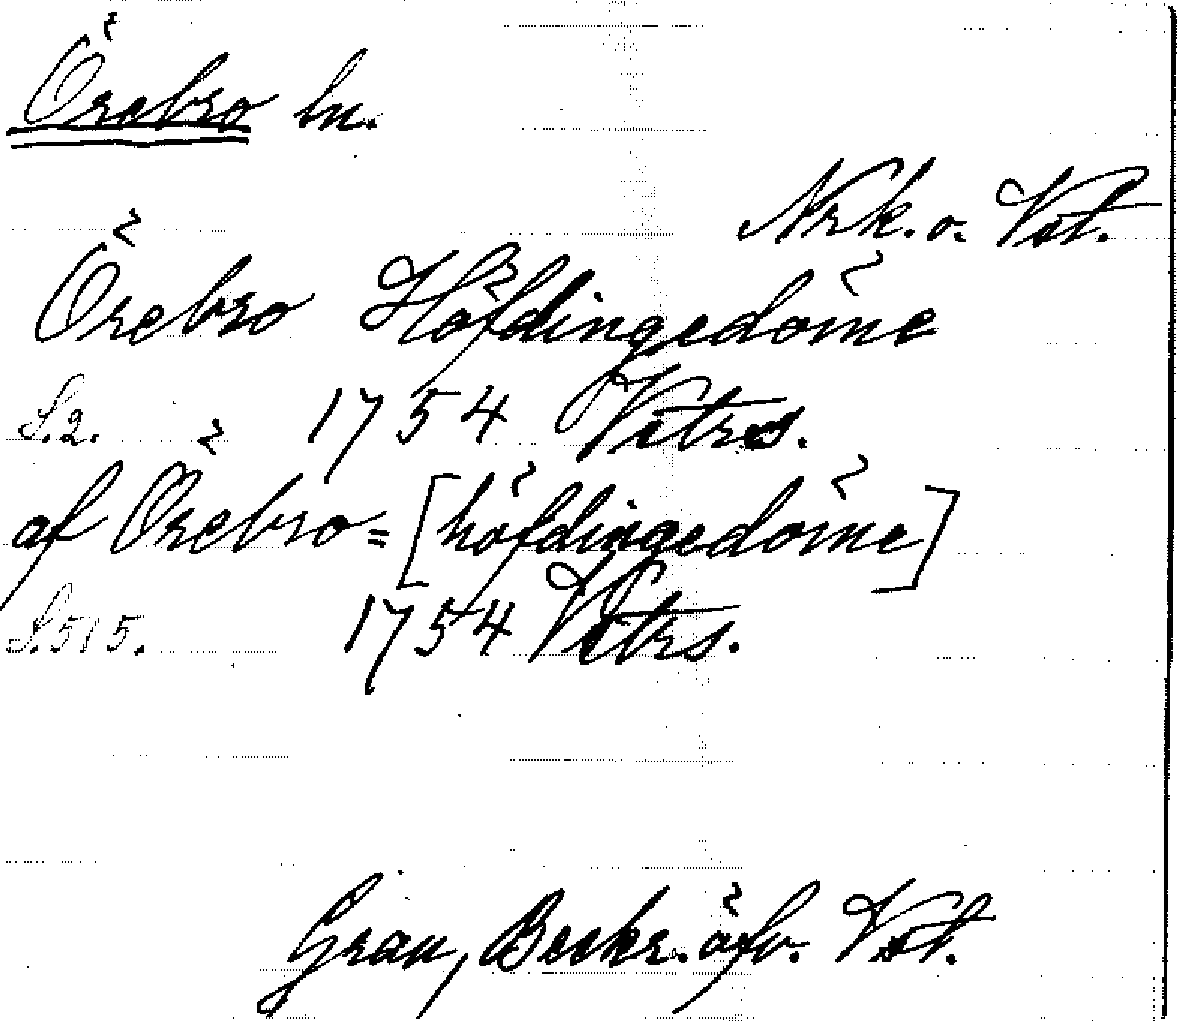 Örebro ln.
Nrk. o. Vst.
Örebro Höfdingedöme
S.2. 1754 Vstrs.
af Örebro=[höfdingedöme]
S.515. 1754 Vstrs.
Grau, Beskr. öfv. Vst.